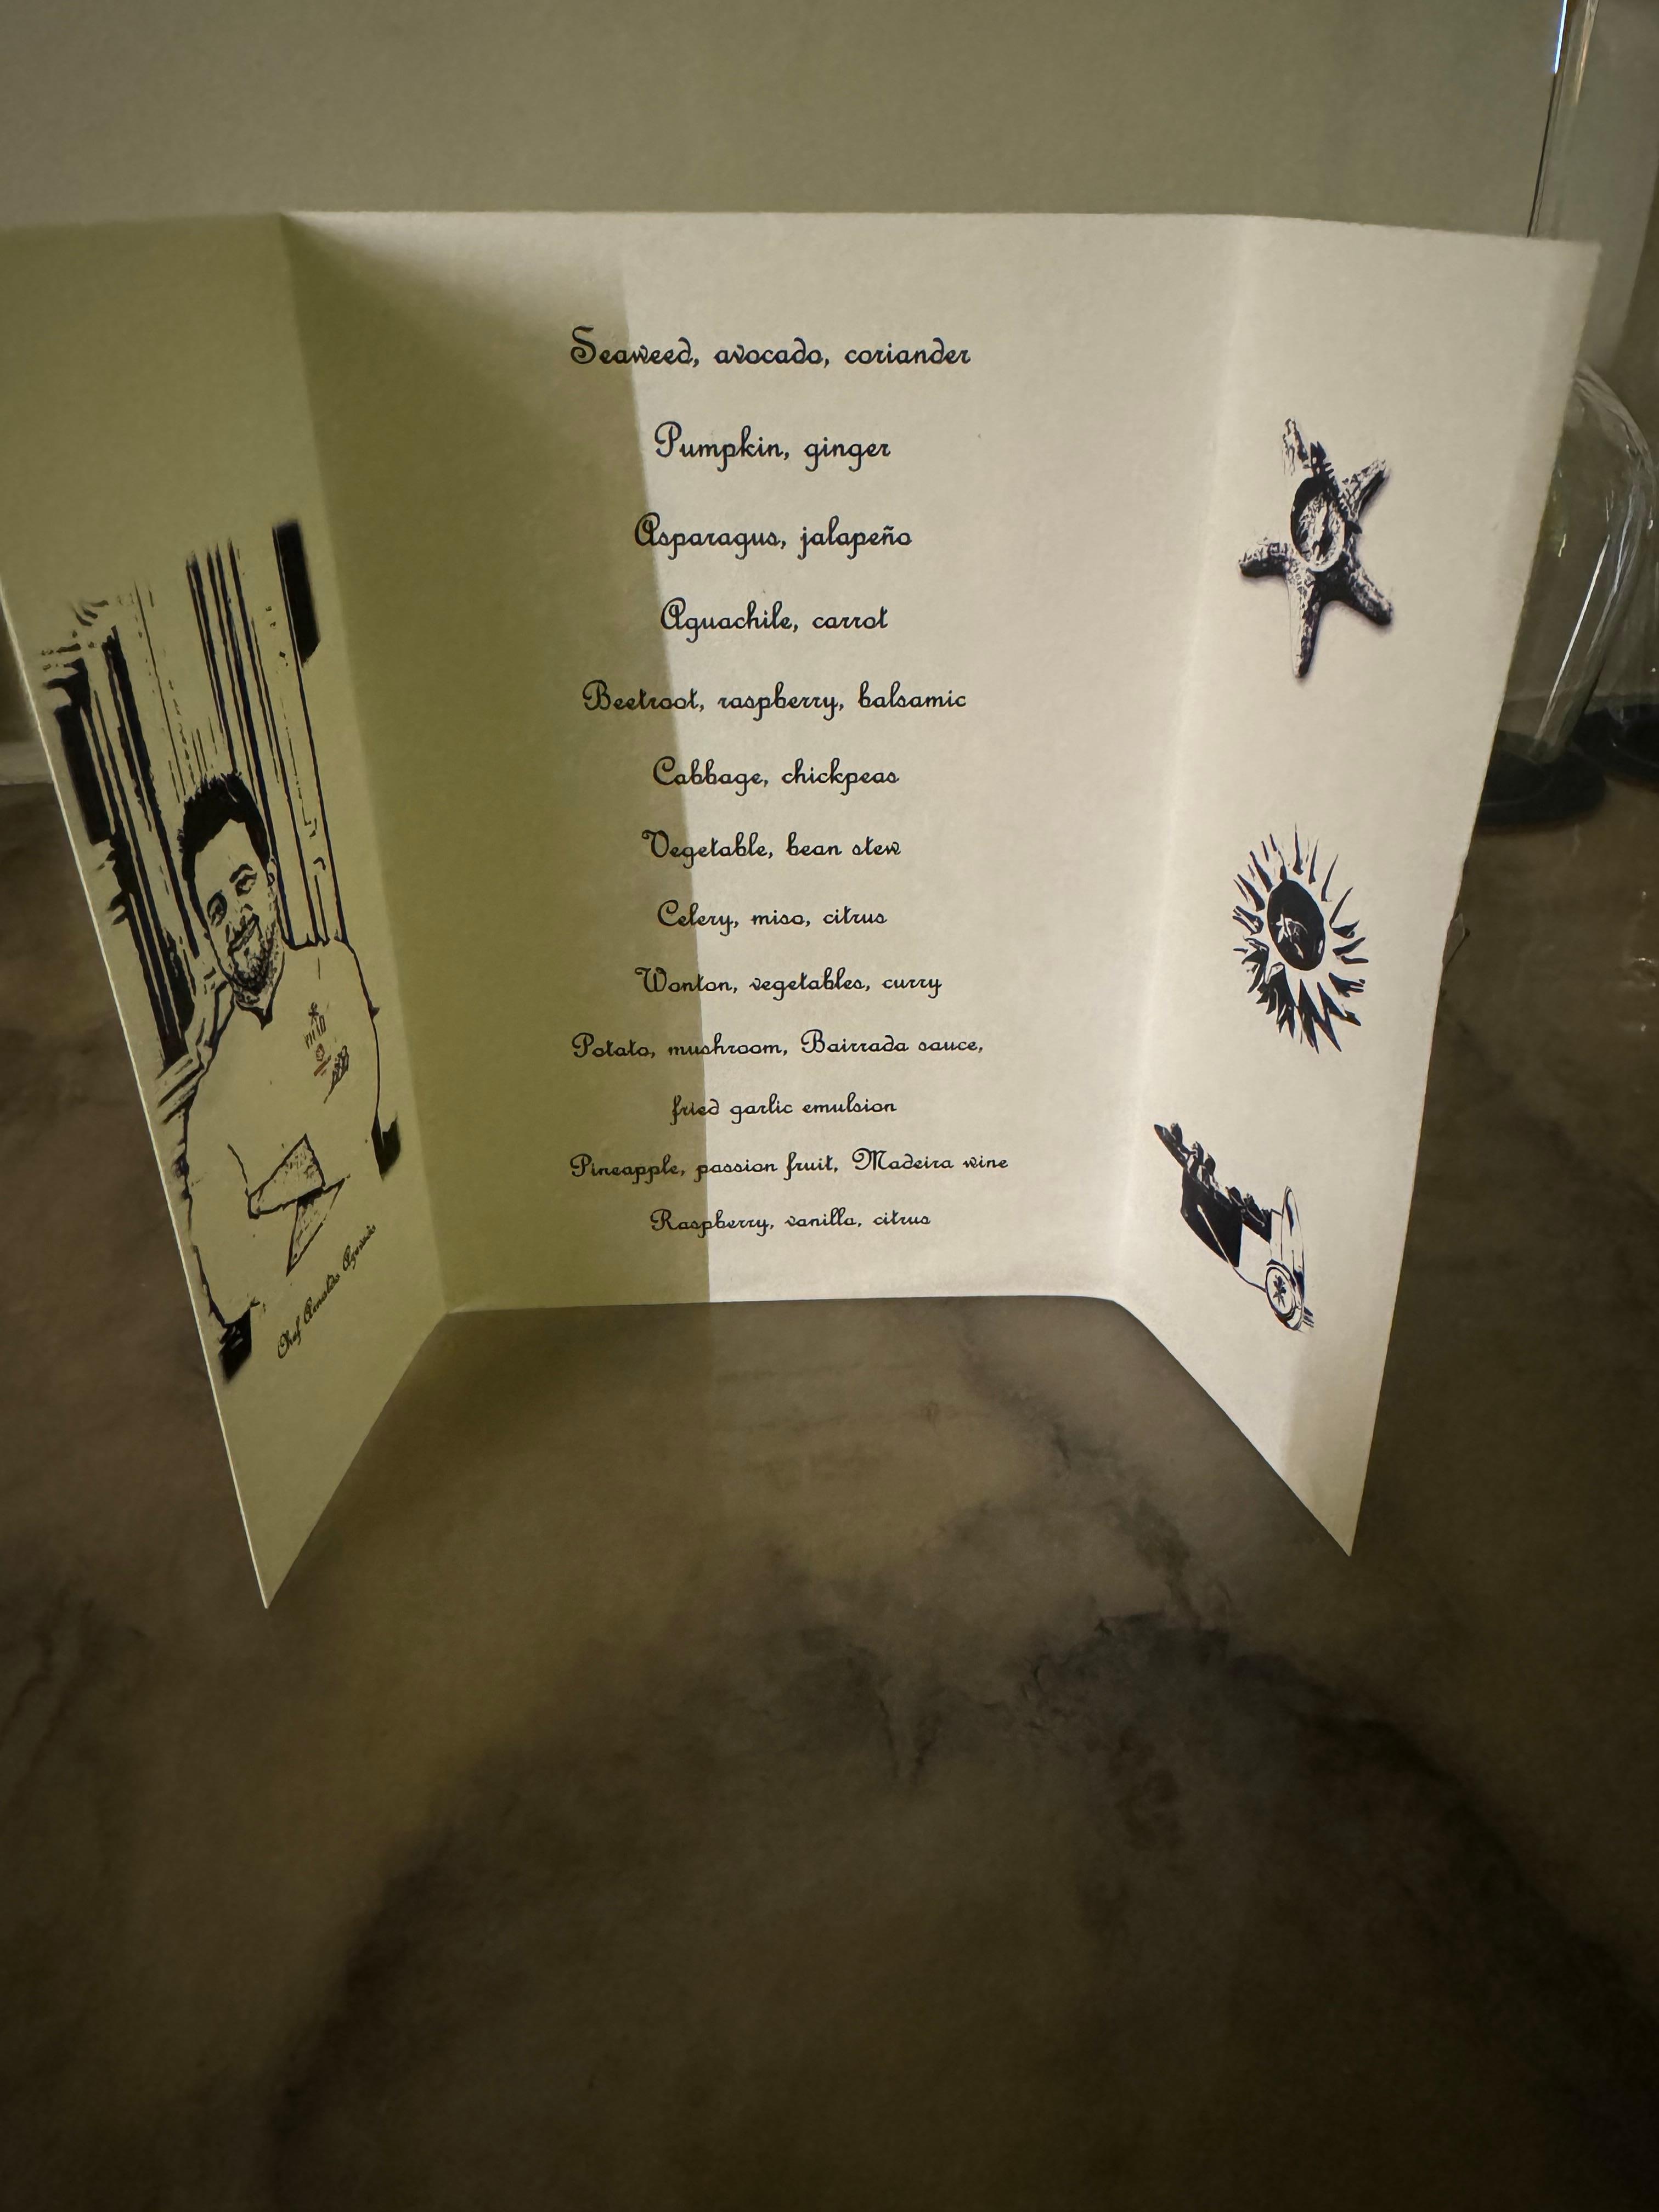 Seaweed, avocado, coriander
Pumpkin, ginger
Asparagus, jalapeño
Aguachile, carrot
Beetroot, raspberry, balsamic
Cabbage, chickpeas
Vegetable, bean stew
Celery, miso, citrus
Wonton, vegetables, curry
Potato, mushroom, Bairrada sauce,
fried garlic emulsion
Pineapple, passion fruit, Madeira wine
Raspberry, vanilla, citrus
Chef Arnaldo Azevedo